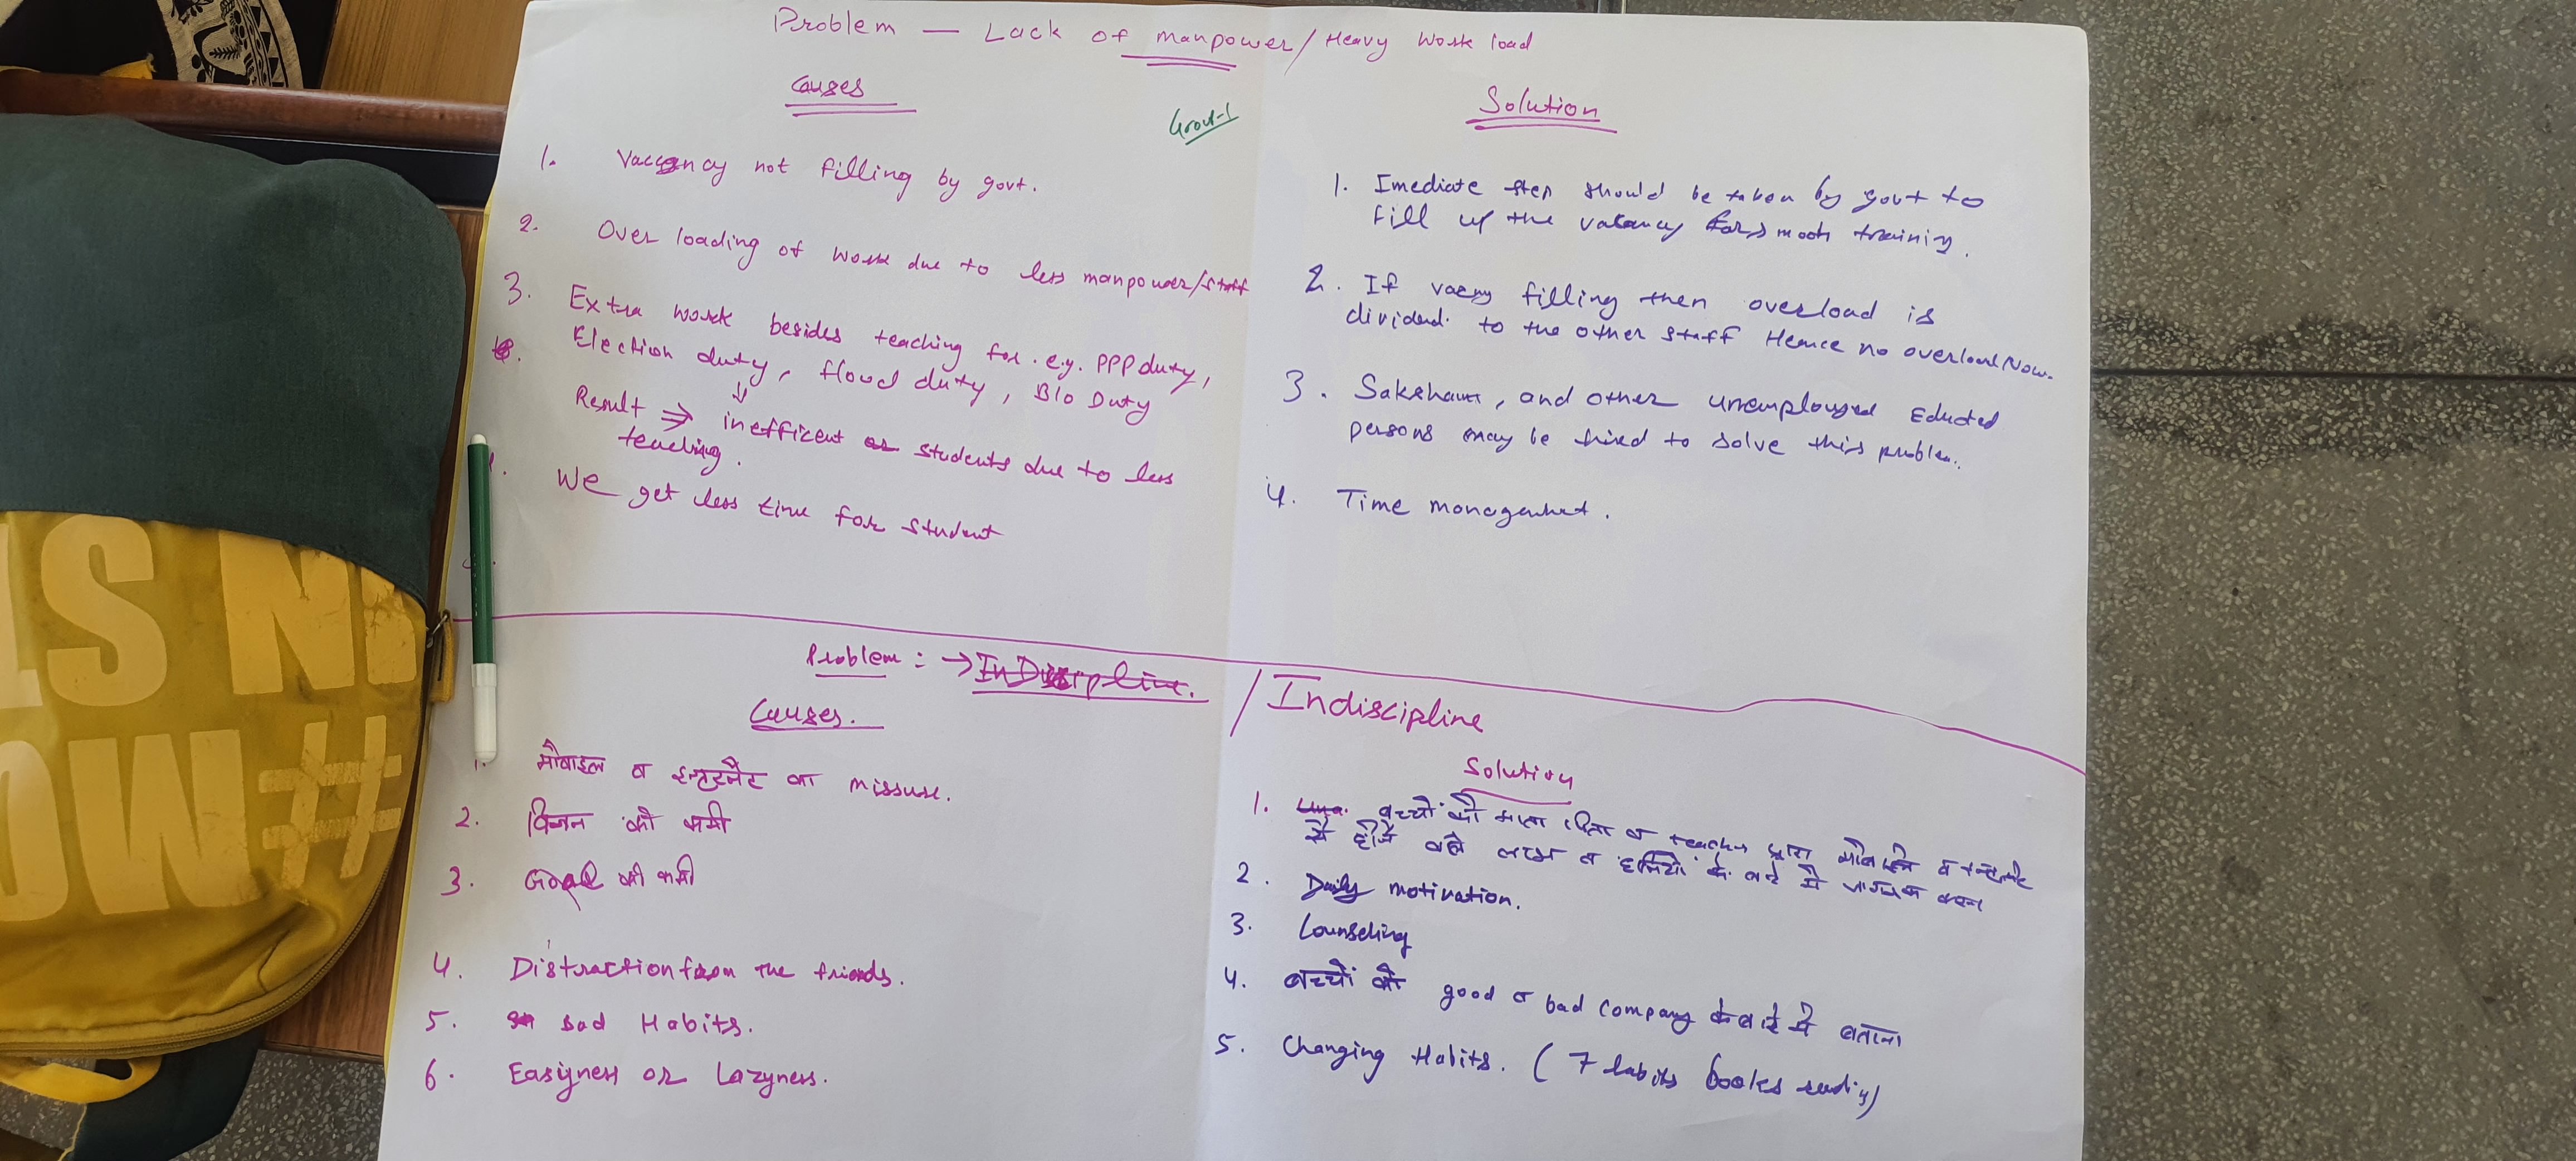 Problem — Lack of manpower/Heavy Work load
Causes
Grout-1
1. Vaccancy not filling by govt.
2. Over loading of work due to less manpower/staff
3. Extra work besides teaching for e.g. PPP duty,
Election duty, flood duty, Blo Duty
Result ⇒ inefficent students due to less
teaching.
We get less time for student
Solution
1. Imediate step should be taken by govt to
fill up the vacancy for smooth training.
2. If filling then overload is
divided to the other staff Hence no overload Now.
3. Saksham, and other unemployed Educted
persons may be hired to solve this problem.
4. Time management.
Problem : → InDiscipline. / Indiscipline
Causes.
1. मोबाइल व इन्टरनैट का missuse.
2. विजन की कमी
3. Goal की कमी
4. Distraction from the friends.
5. bad Habits.
6. Easyness or Lazyness.
Solution
1. बच्चों को माता पिता व teacher द्वारा मोबाईल व
से होने वाले लाभ व हानियों के बारे में जागरूक करना
2. Daily motivation.
3. Counseling
4. बच्चों को good व bad company के बारे में बताना
5. Changing Habits. (7 habits books reading)
IN ST
#MOW